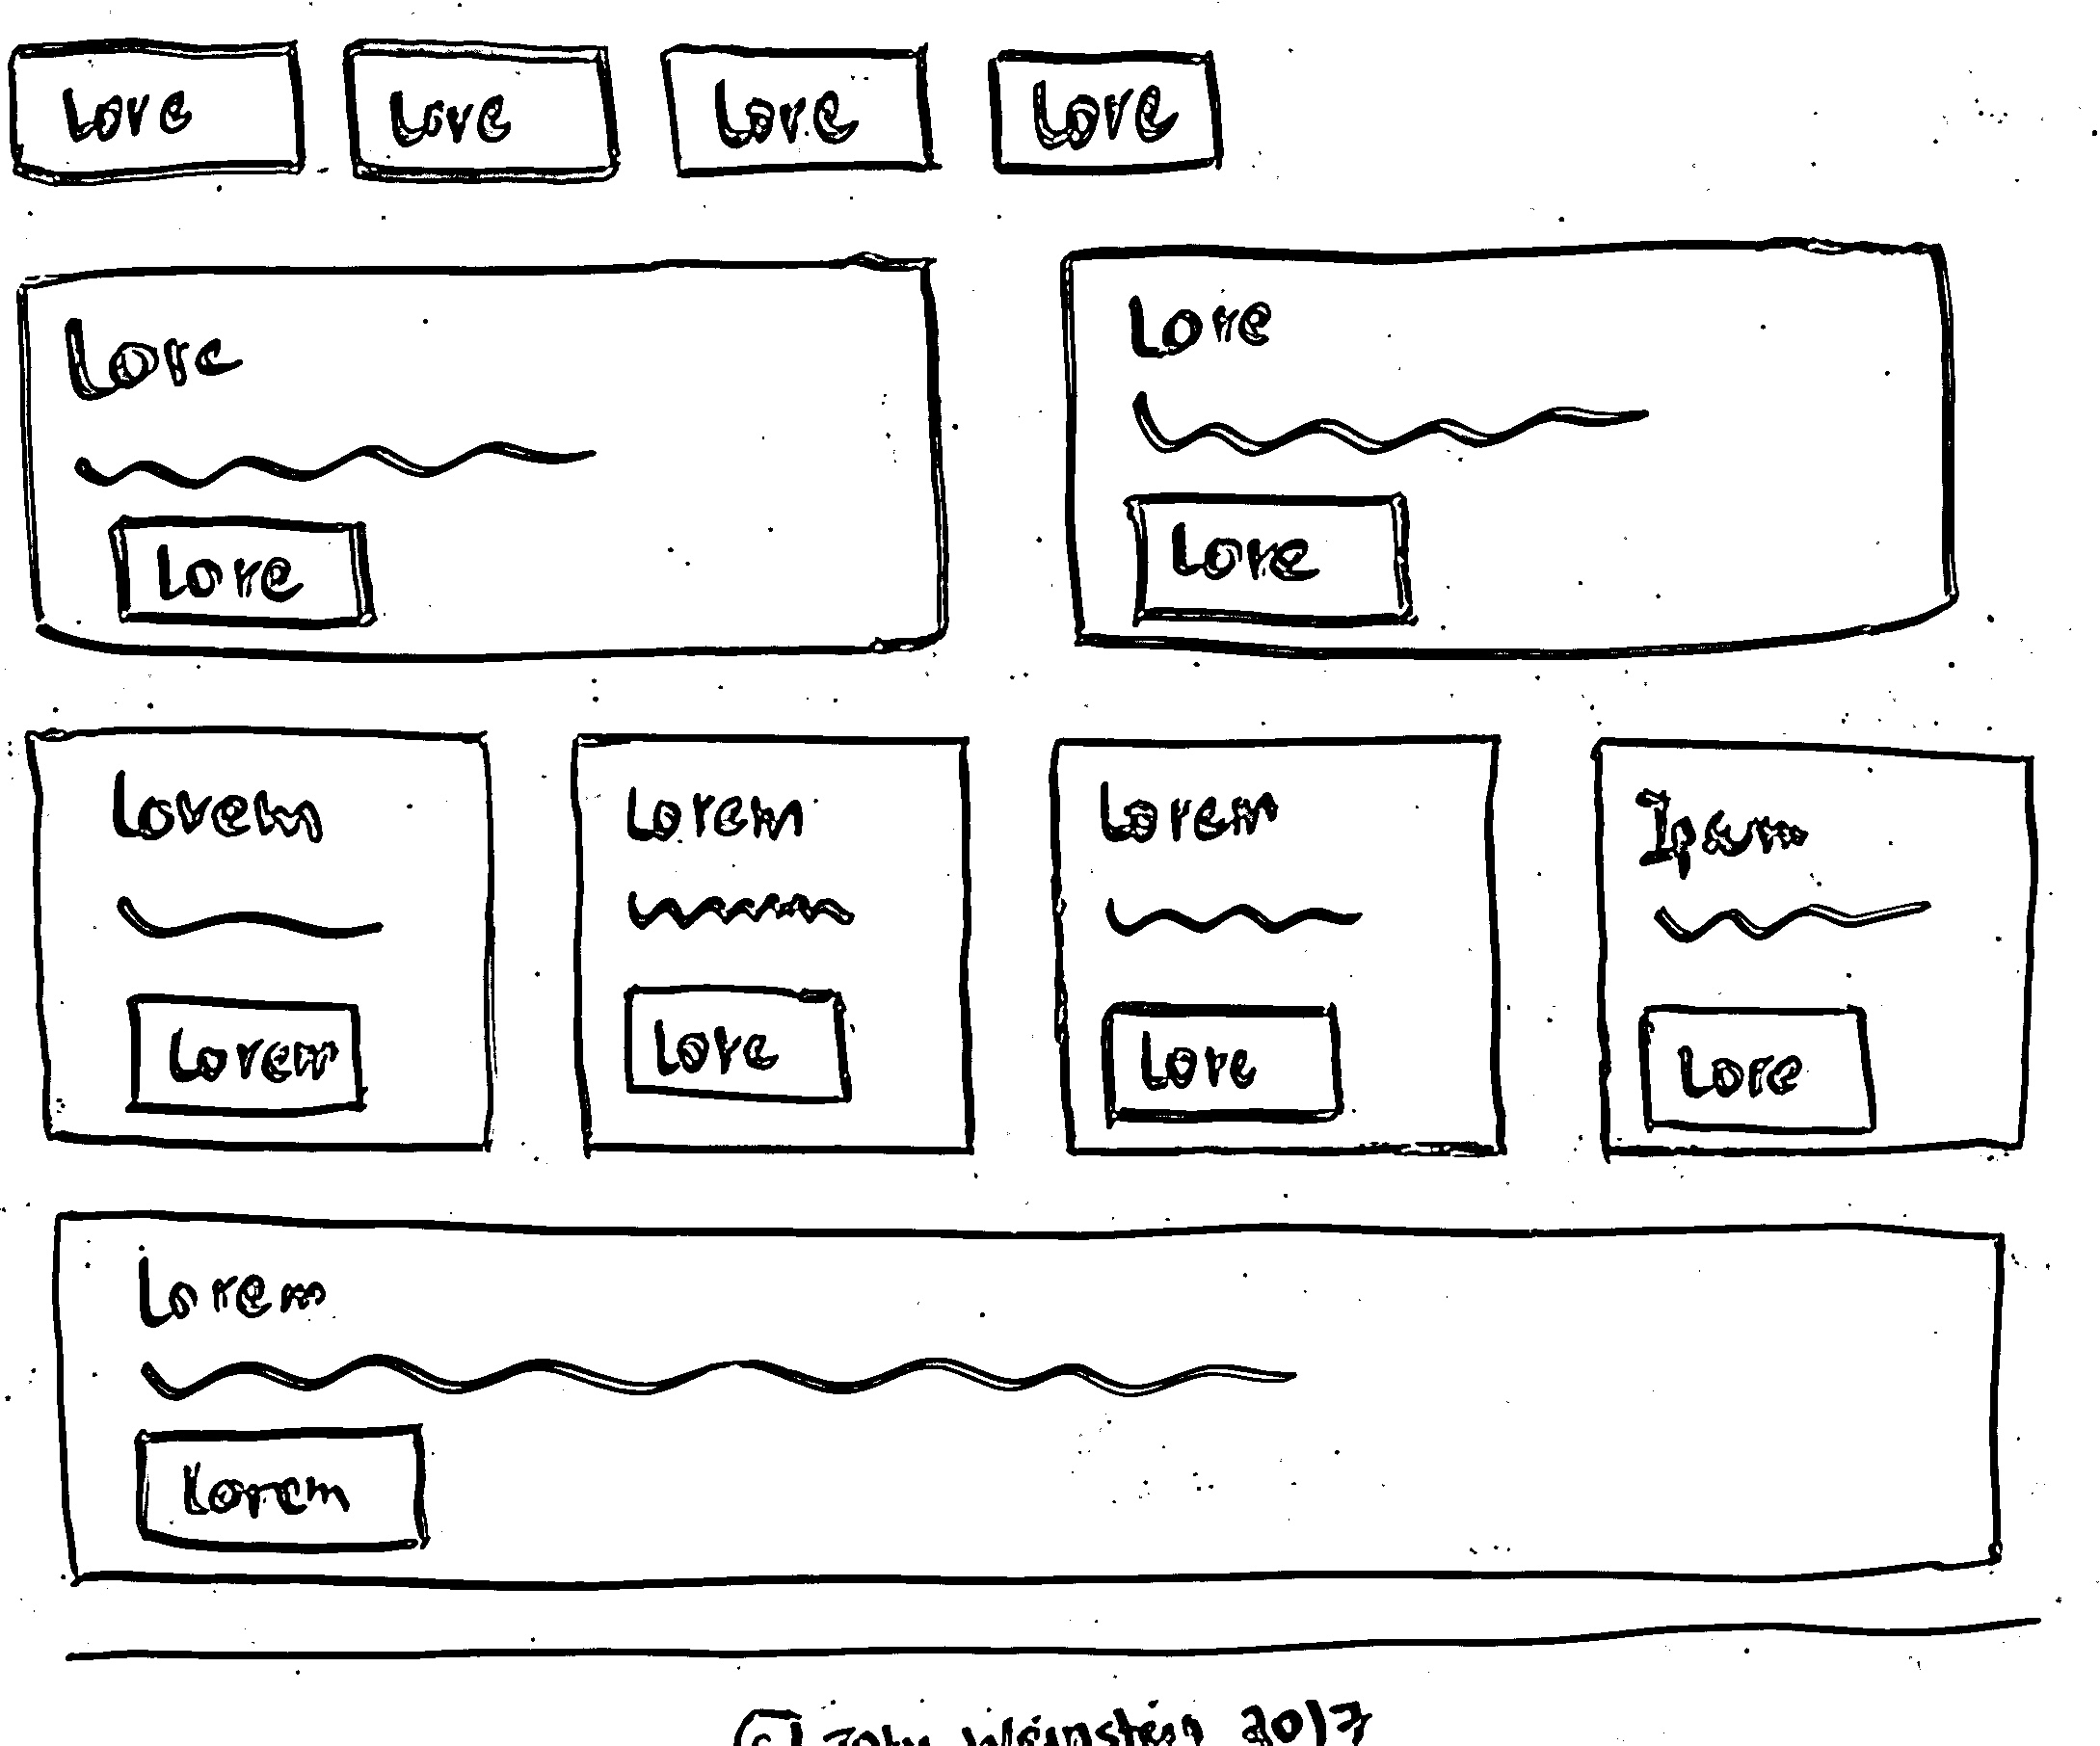 Lore Lore Lore Lore
Lore
Lore
Lore
Lore
Lorem
Lorem
Lorem
Lore
Lorem
Lore
Ipsum
Lore
Lorem
Lorem
© John Weinstein 2017